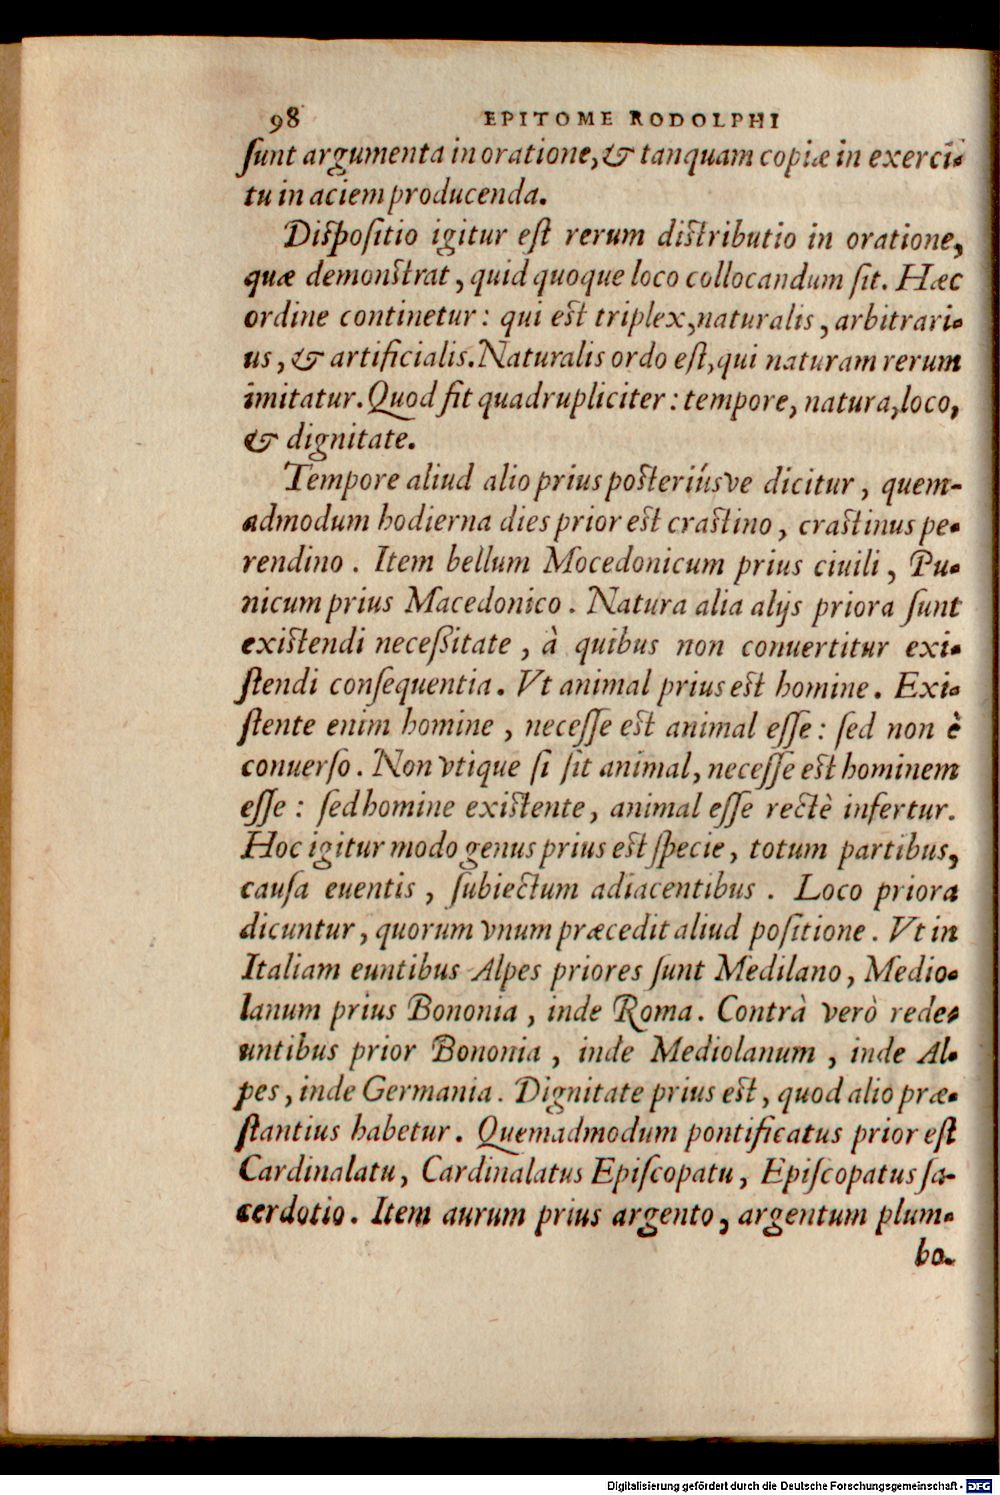 98 EPITOME RODOLPHI
ſunt argumenta in oratione, & tanquam copiæ in exerci-
tu in aciem producenda.
Diſpoſitio igitur eſt rerum diſtributio in oratione,
quæ demonſtrat, quid quoque loco collocandum ſit. Hæc
ordine continetur: qui eſt triplex, naturalis, arbitrari-
us, & artificialis. Naturalis ordo eſt, qui naturam rerum
imitatur. Quod fit quadrupliciter: tempore, natura, loco,
& dignitate.
Tempore aliud alio prius poſteriúsve dicitur, quem-
admodum hodierna dies prior eſt craſtino, craſtinus pe-
rendino. Item bellum Mocedonicum prius ciuili, Pu-
nicum prius Macedonico. Natura alia alijs priora ſunt
exiſtendi neceßitate, à quibus non conuertitur exi-
ſtendi conſequentia. Vt animal prius eſt homine. Exi-
ſtente enim homine, neceſſe eſt animal eſſe: ſed non è
conuerſo. Non vtique ſi ſit animal, neceſſe eſt hominem
eſſe: ſed homine exiſtente, animal eſſe rectè infertur.
Hoc igitur modo genus prius eſt ſpecie, totum partibus,
cauſa euentis, ſubiectum adiacentibus. Loco priora
dicuntur, quorum vnum præcedit aliud poſitione. Vt in
Italiam euntibus Alpes priores ſunt Medilano, Medio-
lanum prius Bononia, inde Roma. Contrà verò rede-
untibus prior Bononia, inde Mediolanum, inde Al-
pes, inde Germania. Dignitate prius eſt, quod alio præ-
ſtantius habetur. Quemadmodum pontificatus prior eſt
Cardinalatu, Cardinalatus Epiſcopatu, Epiſcopatus ſa-
cerdotio. Item aurum prius argento, argentum plum-
bo.
Digitalisierung gefördert durch die Deutsche Forschungsgemeinschaft - DFG